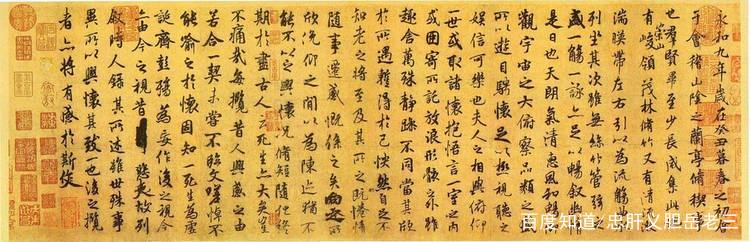 永和九年歲在癸丑暮春之初會
于會稽山陰之蘭亭脩稧事
也群賢畢至少長咸集此地
有崇山峻領茂林脩竹又有清流激
湍暎帶左右引以為流觴曲水
列坐其次雖無絲竹管弦之
盛一觴一詠亦足以暢敘幽情
是日也天朗氣清惠風和暢仰
觀宇宙之大俯察品類之盛
所以遊目騁懷足以極視聽之
娛信可樂也夫人之相與俯仰
一世或取諸懷抱悟言一室之內
或因寄所託放浪形骸之外雖
趣舍萬殊靜躁不同當其欣
於所遇蹔得於己怏然自足不
知老之將至及其所之既惓情
隨事遷感慨係之矣向之所
欣俛仰之閒以為陳迹猶不
能不以之興懷況脩短隨化終
期於盡古人云死生亦大矣豈
不痛哉每攬昔人興感之由
若合一契未嘗不臨文嗟悼不
能喻之於懷固知一死生為虛
誕齊彭殤為妄作後之視今
亦由今之視昔悲夫故列
敘時人錄其所述雖世殊事
異所以興懷其致一也後之攬
者亦將有感於斯文
百度知道 忠肝义胆岳老三